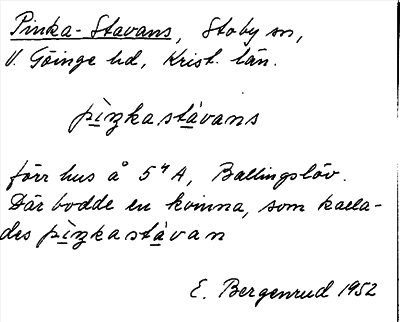 Pinka-Stavans, Stoby sn,
V. Göinge hd, Krist. län.
pìŋkastàvans
förr hus å 5⁴ A, Ballingslöv.
Där bodde en kvinna, som kalla-
des pìŋkastàvan
E. Bergenrud 1952